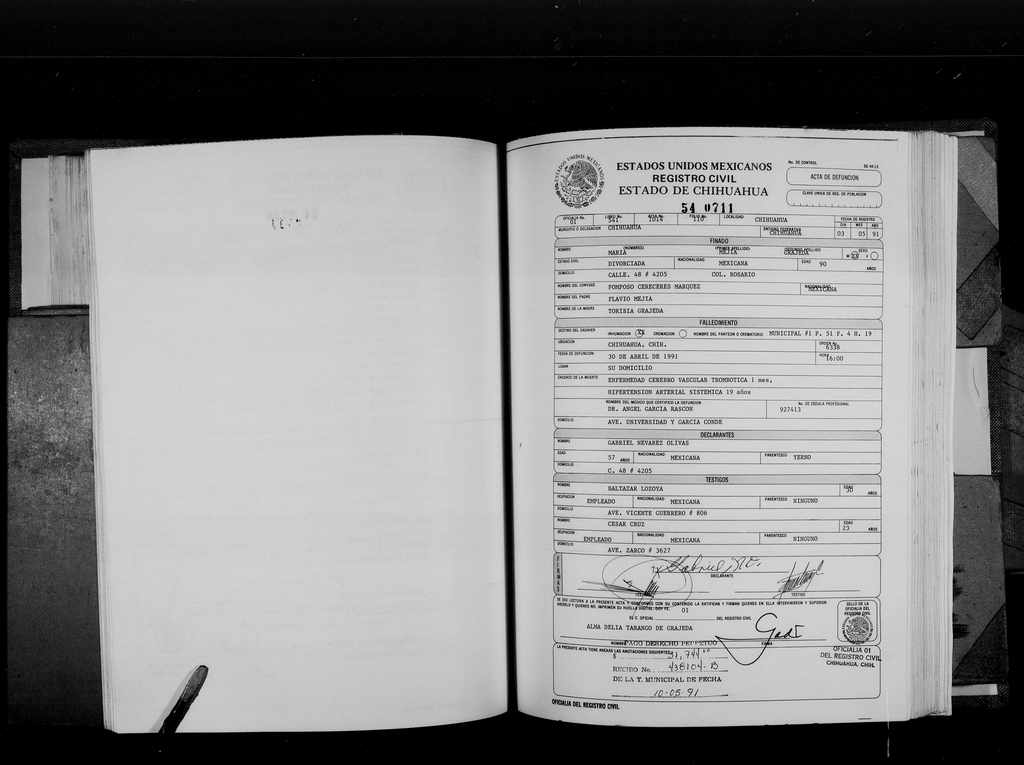 ESTADOS UNIDOS MEXICANOS
REGISTRO CIVIL
ESTADO DE CHIHUAHUA
No. DE CONTROL
ACTA DE DEFUNCION
CLAVE UNICA DE REG. DE POBLACION
54 0711
OFICIALIA No. 01 LIBRO No. 541 ACTA No. 1014 FOLIO No. 110 LOCALIDAD CHIHUAHUA FECHA DE REGISTRO
MUNICIPIO O DELEGACION CHIHUAHUA ENTIDAD FEDERATIVA CHIHUAHUA DIA 03 MES 05 AÑO 91
FINADO
NOMBRE (NOMBRES) MARIA (PRIMER APELLIDO) MEJIA (SEGUNDO APELLIDO) GRAJEDA SEXO
ESTADO CIVIL DIVORCIADA NACIONALIDAD MEXICANA EDAD 90 AÑOS
DOMICILIO CALLE. 48 # 4205 COL. ROSARIO
NOMBRE DEL CONYUGE POMPOSO CERECERES MARQUEZ NACIONALIDAD MEXICANA
NOMBRE DEL PADRE FLAVIO MEJIA
NOMBRE DE LA MADRE TORIBIA GRAJEDA
FALLECIMIENTO
DESTINO DEL CADAVER INHUMACION XX CREMACION NOMBRE DEL PANTEON O CREMATORIO MUNICIPAL #1 P. 51 F. 4 H. 19
UBICACION CHIHUAHUA, CHIH. ORDEN No. 6338
FECHA DE DEFUNCION 30 DE ABRIL DE 1991 HORA 16:00
LUGAR SU DOMICILIO
CAUSA(S) DE LA MUERTE ENFERMEDAD CEREBRO VASCULAR TROMBOTICA 1 mes,
HIPERTENSION ARTERIAL SISTEMICA 19 años
NOMBRE DEL MEDICO QUE CERTIFICO LA DEFUNCION No. DE CEDULA PROFESIONAL
DR. ANGEL GARCIA RASCON 927413
DOMICILIO AVE. UNIVERSIDAD Y GARCIA CONDE
DECLARANTES
NOMBRE GABRIEL NEVAREZ OLIVAS
EDAD 57 AÑOS NACIONALIDAD MEXICANA PARENTESCO YERNO
DOMICILIO C. 48 # 4205
TESTIGOS
NOMBRE BALTAZAR LOZOYA EDAD 50 AÑOS
OCUPACION EMPLEADO NACIONALIDAD MEXICANA PARENTESCO NINGUNO
DOMICILIO AVE. VICENTE GUERRERO # 806
NOMBRE CESAR CRUZ EDAD 23 AÑOS
OCUPACION EMPLEADO NACIONALIDAD MEXICANA PARENTESCO NINGUNO
DOMICILIO AVE. ZARCO # 3627
FIRMAS
DECLARANTE
TESTIGO
SE DIO LECTURA A LA PRESENTE ACTA Y CONFORMES CON SU CONTENIDO LA RATIFICAN Y FIRMAN QUIENES EN ELLA INTERVINIERON Y SUPIERON
HACERLO Y QUIENES NO, IMPRIMEN SU HUELLA DIGITAL. DOY FE. 01
EL C. OFICIAL DEL REGISTRO CIVIL
ALMA DELIA TARANGO DE GRAJEDA
SELLO DE LA OFICIALIA DEL REGISTRO CIVIL
NOMBRE FIRMA
PAGO DERECHO PERPETUO
LA PRESENTE ACTA TIENE ANEXAS LAS ANOTACIONES SIGUIENTES:
$ 31,744
RECIBO No. 438104-B
DE LA T. MUNICIPAL DE FECHA
10-05-91
OFICIALIA 01
DEL REGISTRO CIVIL
CHIHUAHUA, CHIH.
OFICIALIA DEL REGISTRO CIVIL